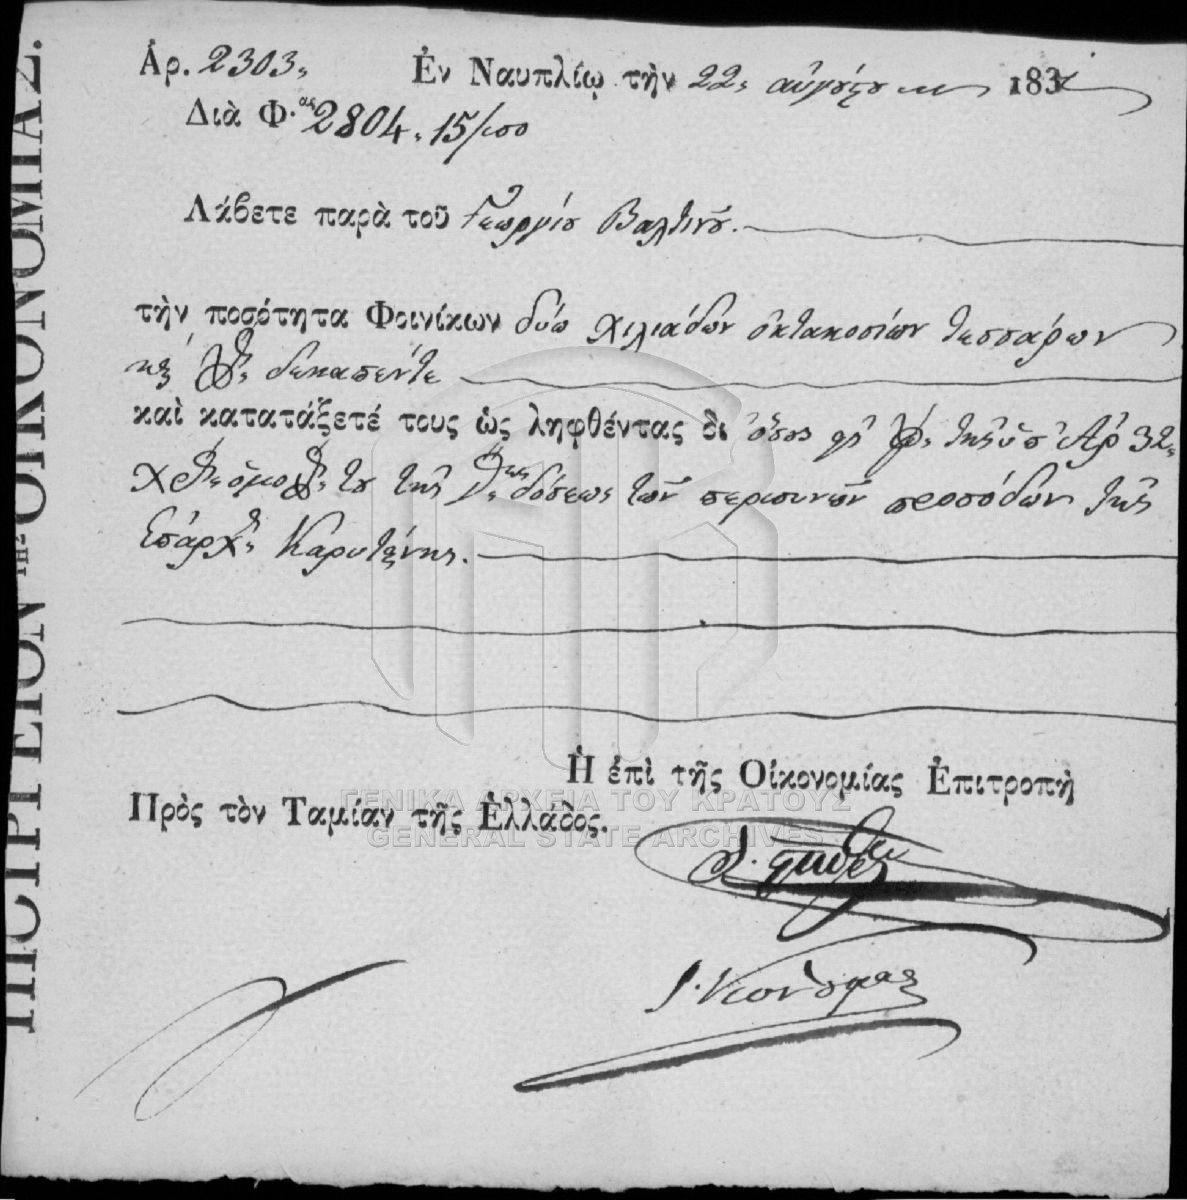 ΤΗΣ ΟΙΚΟΝΟΜΙΑΣ.
Ἀρ. 2303, Ἐν Ναυπλίῳ τὴν 22, αὐγούστου 183
Διὰ Φ. 2804, 15/100
Λάβετε παρὰ τοῦ Γεωργίου Βαλτινοῦ.
τὴν ποσότητα Φοινίκων δύω χιλιάδων ὀκτακοσίων τεσσάρων
δεκαπέντε
καὶ κατατάξετέ τους ὡς ληφθέντας δι τῆς ὑπ' Ἀρ 32,
τῆς δόσεως τῶν περισυνῶν προσόδων τῆς
Ἐπαρχ. Καρυταίνης.
Ἡ ἐπὶ τῆς Οἰκονομίας Ἐπιτροπὴ
Πρὸς τὸν Ταμίαν τῆς Ἑλλάδος.
ΓΕΝΙΚΑ ΑΡΧΕΙΑ ΤΟΥ ΚΡΑΤΟΥΣ
GENERAL STATE ARCHIVES